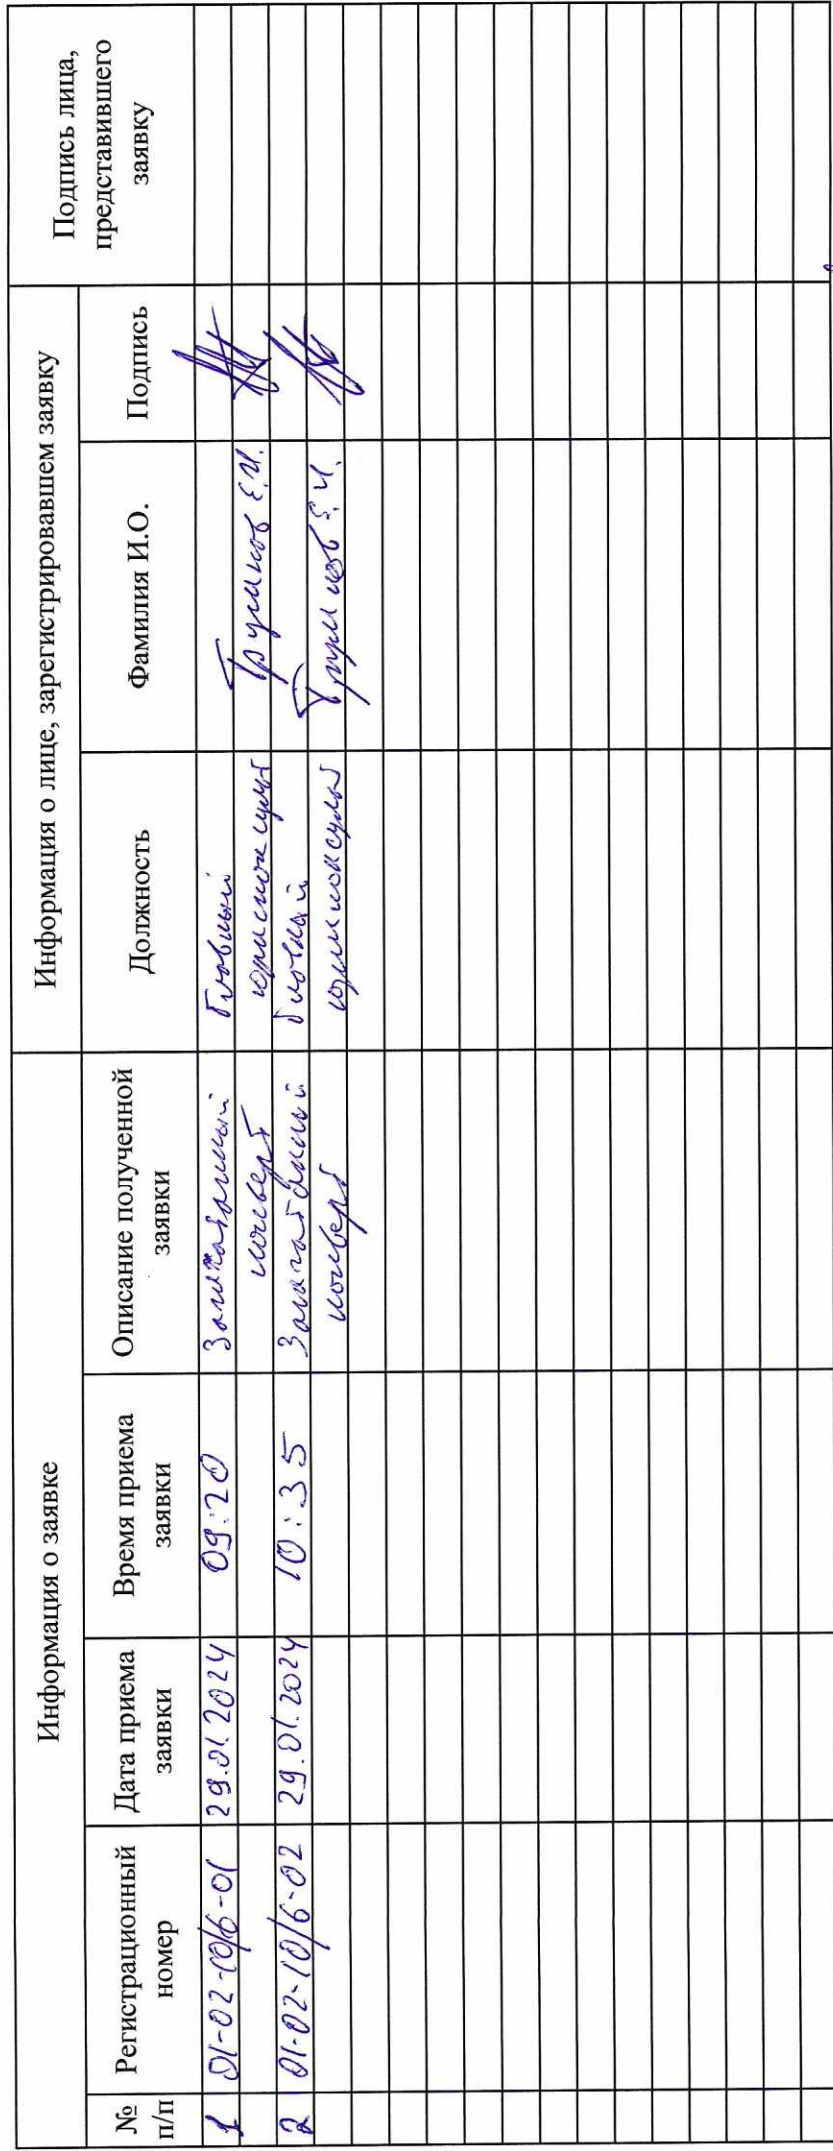 Информация о заявке
Информация о лице, зарегистрировавшем заявку
Подпись лица,
представившего
заявку
№
п/п
Регистрационный
номер
Дата приема
заявки
Время приема
заявки
Описание полученной
заявки
Должность
Фамилия И.О.
Подпись
1 01-02-10/6-01 29.01.2024 09:20 Запечатанный Главный
конверт юрисконсульт Е.И.
2 01-02-10/6-02 29.01.2024 10:35 Запечатанный Главный
конверт юрисконсульт Е.И.